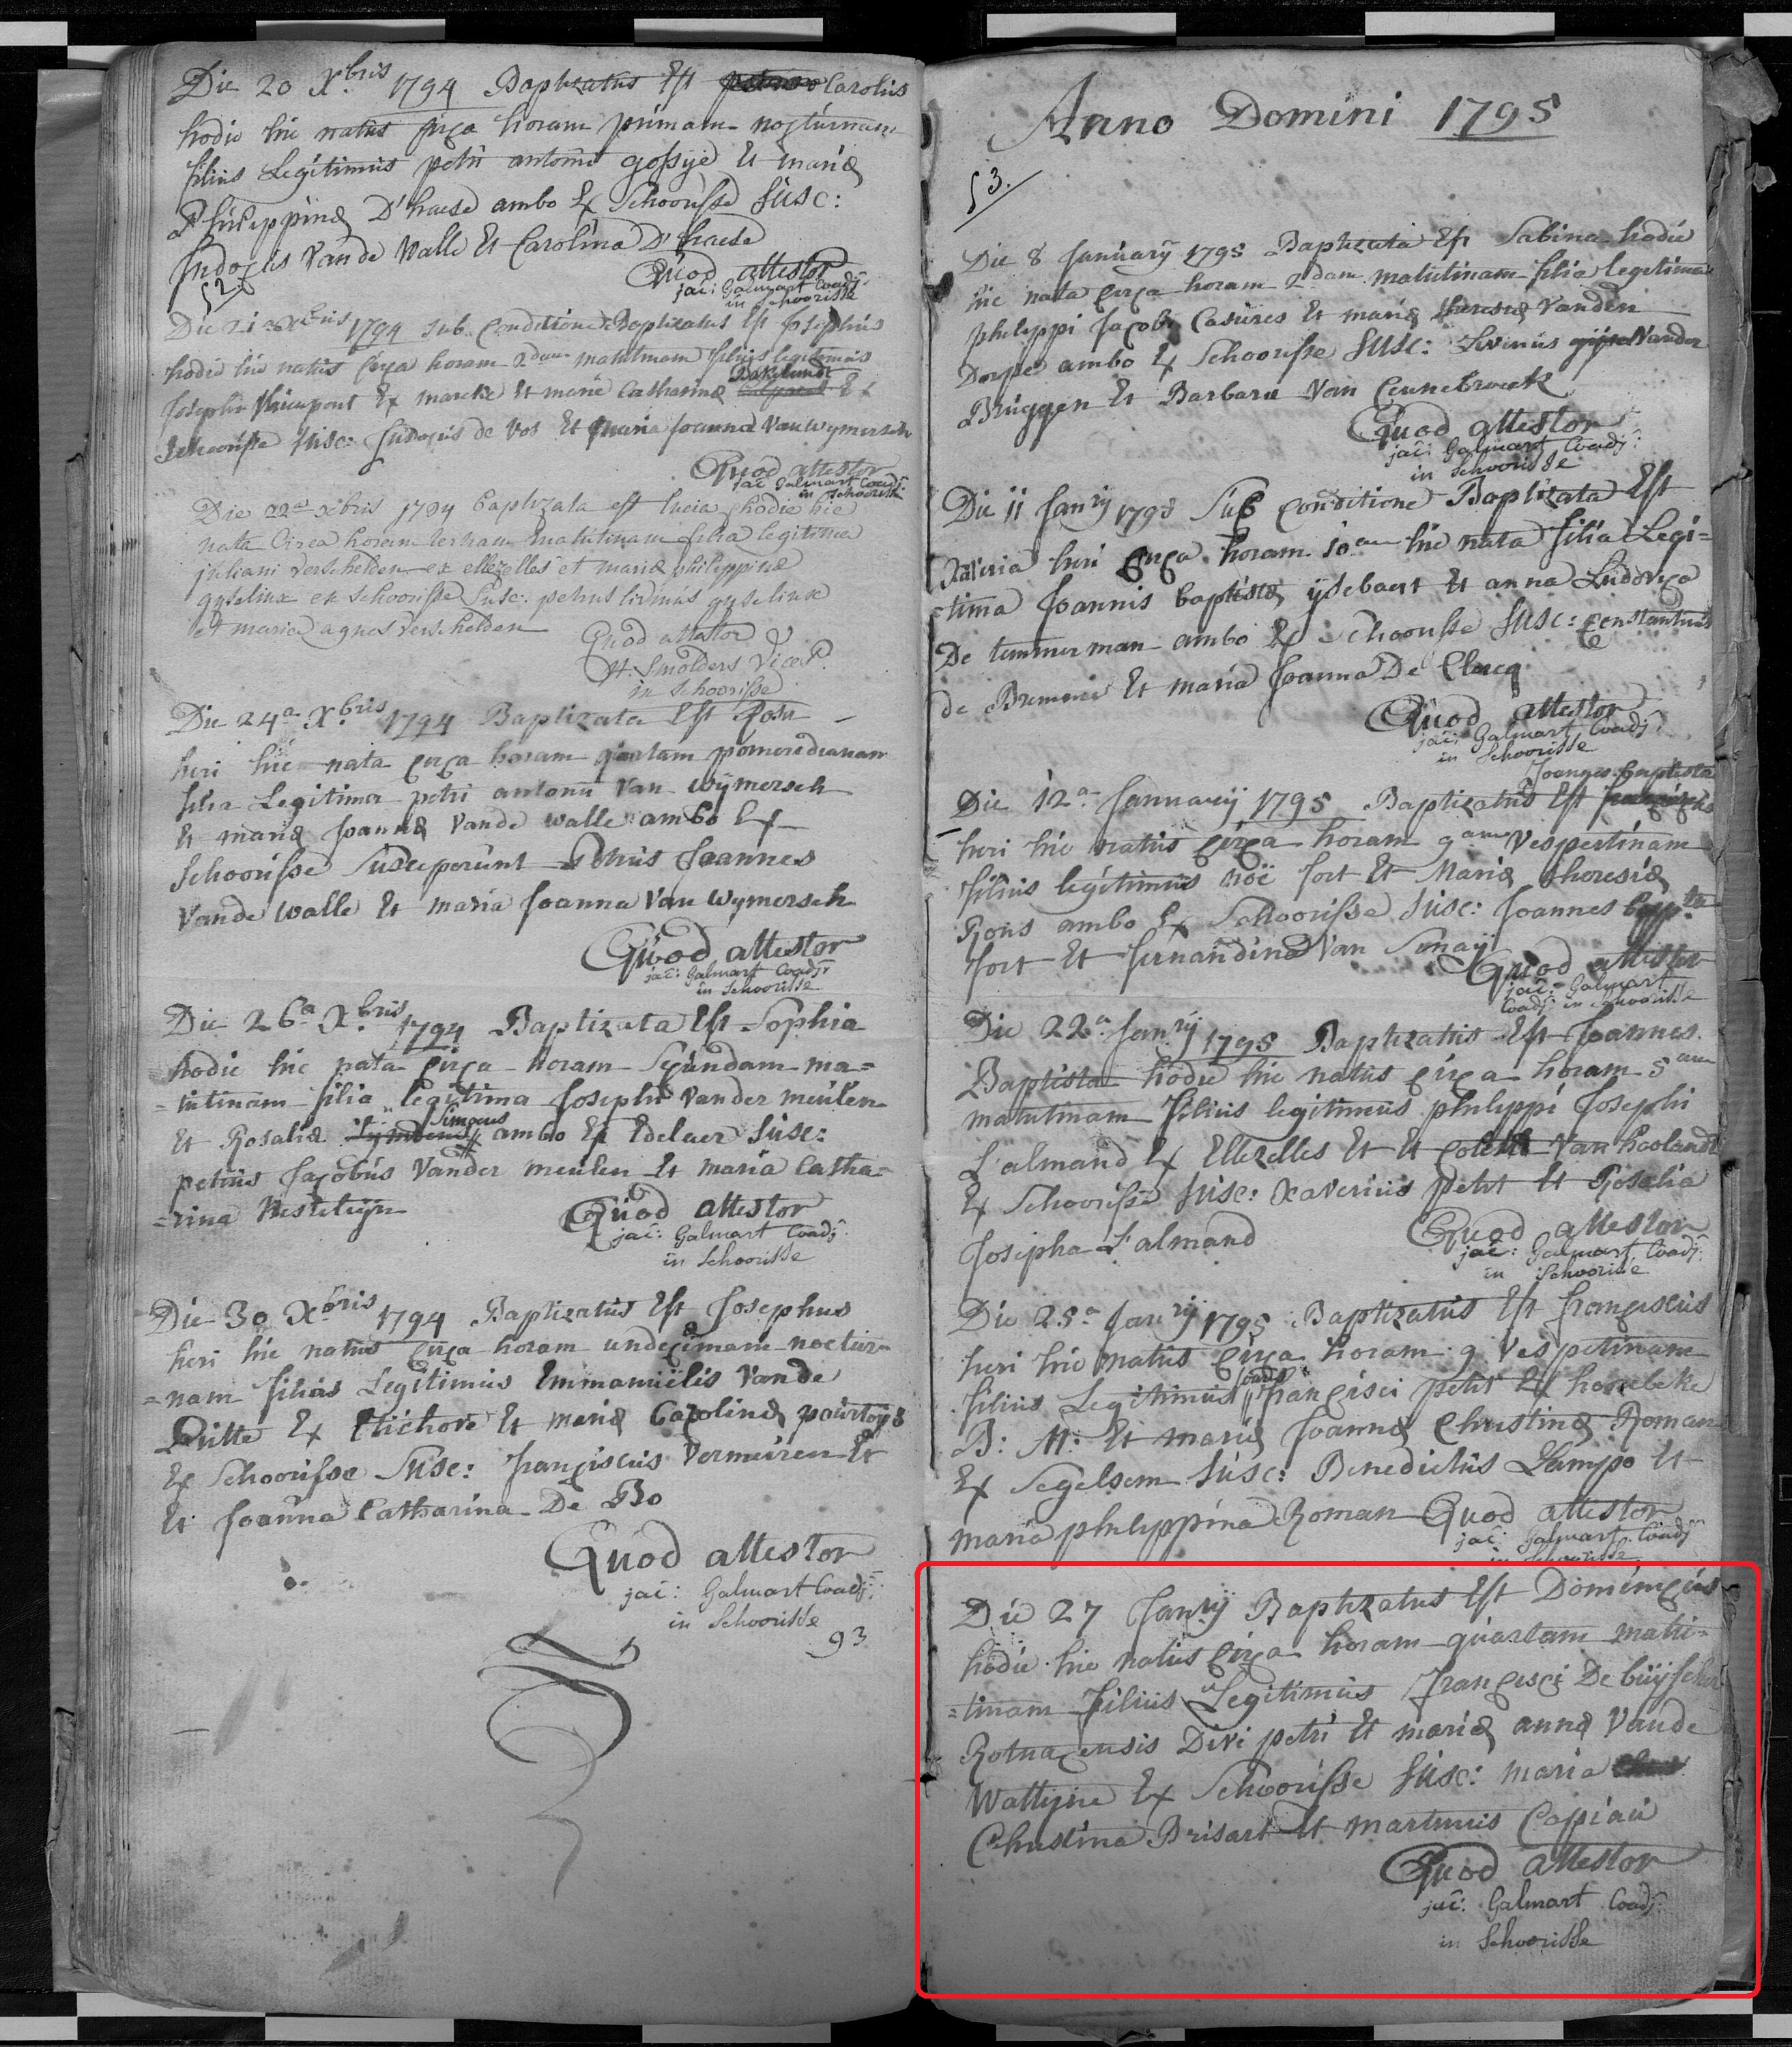 Die 20 Xbris 1794 Baptizatus Est Carolus
hodie hic natus circa horam primam nocturnam
filius Legitimus petri antonii gossÿe Et mariæ
Philippinæ D'haese ambo Ex Schoorisse Susc:
Judocus Vande Walle Et Carolina D'haese
Quod attestor
jac: Galmart Coadj:
in Schoorisse
52
Die 21 Xbris 1794 sub Conditione Baptizatus Est Josephus
hodie hic natus circa horam 2dam matutinam filius legitimus
Josephi Ex marcke Et mariæ Catharinæ Ex
Schoorisse Susc: Judocus de Vos Et maria Joanna Van Wymersch
Quod attestor
jac Galmart Coadj:
in Schoorisse
Die 22a Xbris 1794 baptizata est lucia hodie hic
nata Circa horam tertiam matutinam filia legitima
juliani verschelden ex ellezelles et mariæ philippinæ
gyselinx ex schoorisse Susc: petrus livinus gyselinx
et maria agnes verschelden
Quod attestor
H. Smolders Vice P.
in Schoorisse
Die 24a Xbris 1794 Baptizata Est Rosa
heri hic nata circa horam quartam pomeredianam
filia Legitima petri antonii Van Wÿmersch
Et mariæ Joannæ Vande Walle ambo Ex
Schoorisse Susceperunt Petrus Joannes
Vande Walle Et maria Joanna Van Wymersch
Quod attestor
jac: Galmart Coadj:
in Schoorisse
Die 26a Xbris 1794 Baptizata Est Sophia
hodie hic nata circa horam Secundam ma=
=tutinam filia legitima Josephi Vander meulen
Simoens
Et Rosaliæ ambo Ex Edelaer Susc:
petrus Jacobus Vander meulen Et maria Catha=
=rina
Quod attestor
jac: Galmart Coadj:
in Schoorisse
Die 30 Xbris 1794 Baptizatus Est Josephus
heri hic natus circa horam undecimam noctur=
=nam filius Legitimus Emmanuëlis Vande
Putte Ex Etichove Et mariæ Carolinæ pourtoÿs
Ex Schoorisse Susc: franciscus Vermeiren Et
Et Joanna Catharina De Bo
Quod attestor
jac: Galmart Coadj:
in Schoorisse
93
Anno Domini 1795
53.
Die 8 Januarÿ 1795 Baptizata Est Sabina hodie
hic nata circa horam 2dam matutinam filia legitima
philippi Jacobi Casures Et mariæ theresiæ Vanden
Dorpe ambo Ex Schoorisse Susc: Livinus Vander
Bruggen Et Barbara Van Ceunebroeck
Quod attestor
jac: Galmart Coadj:
in Schoorisse
Die 11 Janrÿ 1795 Sub Conditione Baptizata Est
heri circa horam 10am hic nata filia Legi=
=tima Joannis baptistæ ÿsebaert Et anna Ludovica
De temmerman ambo Ex Schoorisse Susc: Constantinus
de Et maria Joanna De Clercq
Quod attestor
jac: Galmart Coadj:
in Schoorisse
Joannes baptista
Die 12a Januarÿ 1795 Baptizatus Est
heri hic natus circa horam 9am Vespertinam
filius legitimus noë fort Et Mariæ theresiæ
Rons ambo Ex Schoorisse Susc: Joannes bapta
fort Et fernandina Van Sinaÿ
Quod attestor
jac: Galmart
Coadj: in Schoorisse
Die 22a Janrÿ 1795 Baptizatus Est Joannes
Baptista hodie hic natus circa horam 5am
matutinam filius legitimus philippi Josephi
L'almand Ex Ellezelles Et Et Van hoolandt
Ex Schoorisse Susc: Xaverius petit Et Rosalia
Josepha L'almand
Quod attestor
jac: Galmart Coadj:
in Schoorisse
Die 25a Janrÿ 1795 Baptizatus Est franciscus
heri hic natus circa horam 9 Vespertinam
filius Legitimus francisci petit Ex horebeke
B: M: Et mariæ Joannæ Christinæ Roman
Ex Segelsem Susc: Benedictus Lampo Et
maria philippina Roman Quod attestor
jac: Galmart Coadj:
in Schoorisse
Die 27 Janrÿ Baptizatus Est Dominicus
hodie hic natus circa horam quartam matu=
=tinam filius Legitimus francisci De
Rotnacensis Divi petri Et mariæ annæ Vande
Wattyne Ex Schoorisse Susc: maria
Christina Brisart Et martinus Copiau
Quod attestor
jac: Galmart Coadj:
in Schoorisse